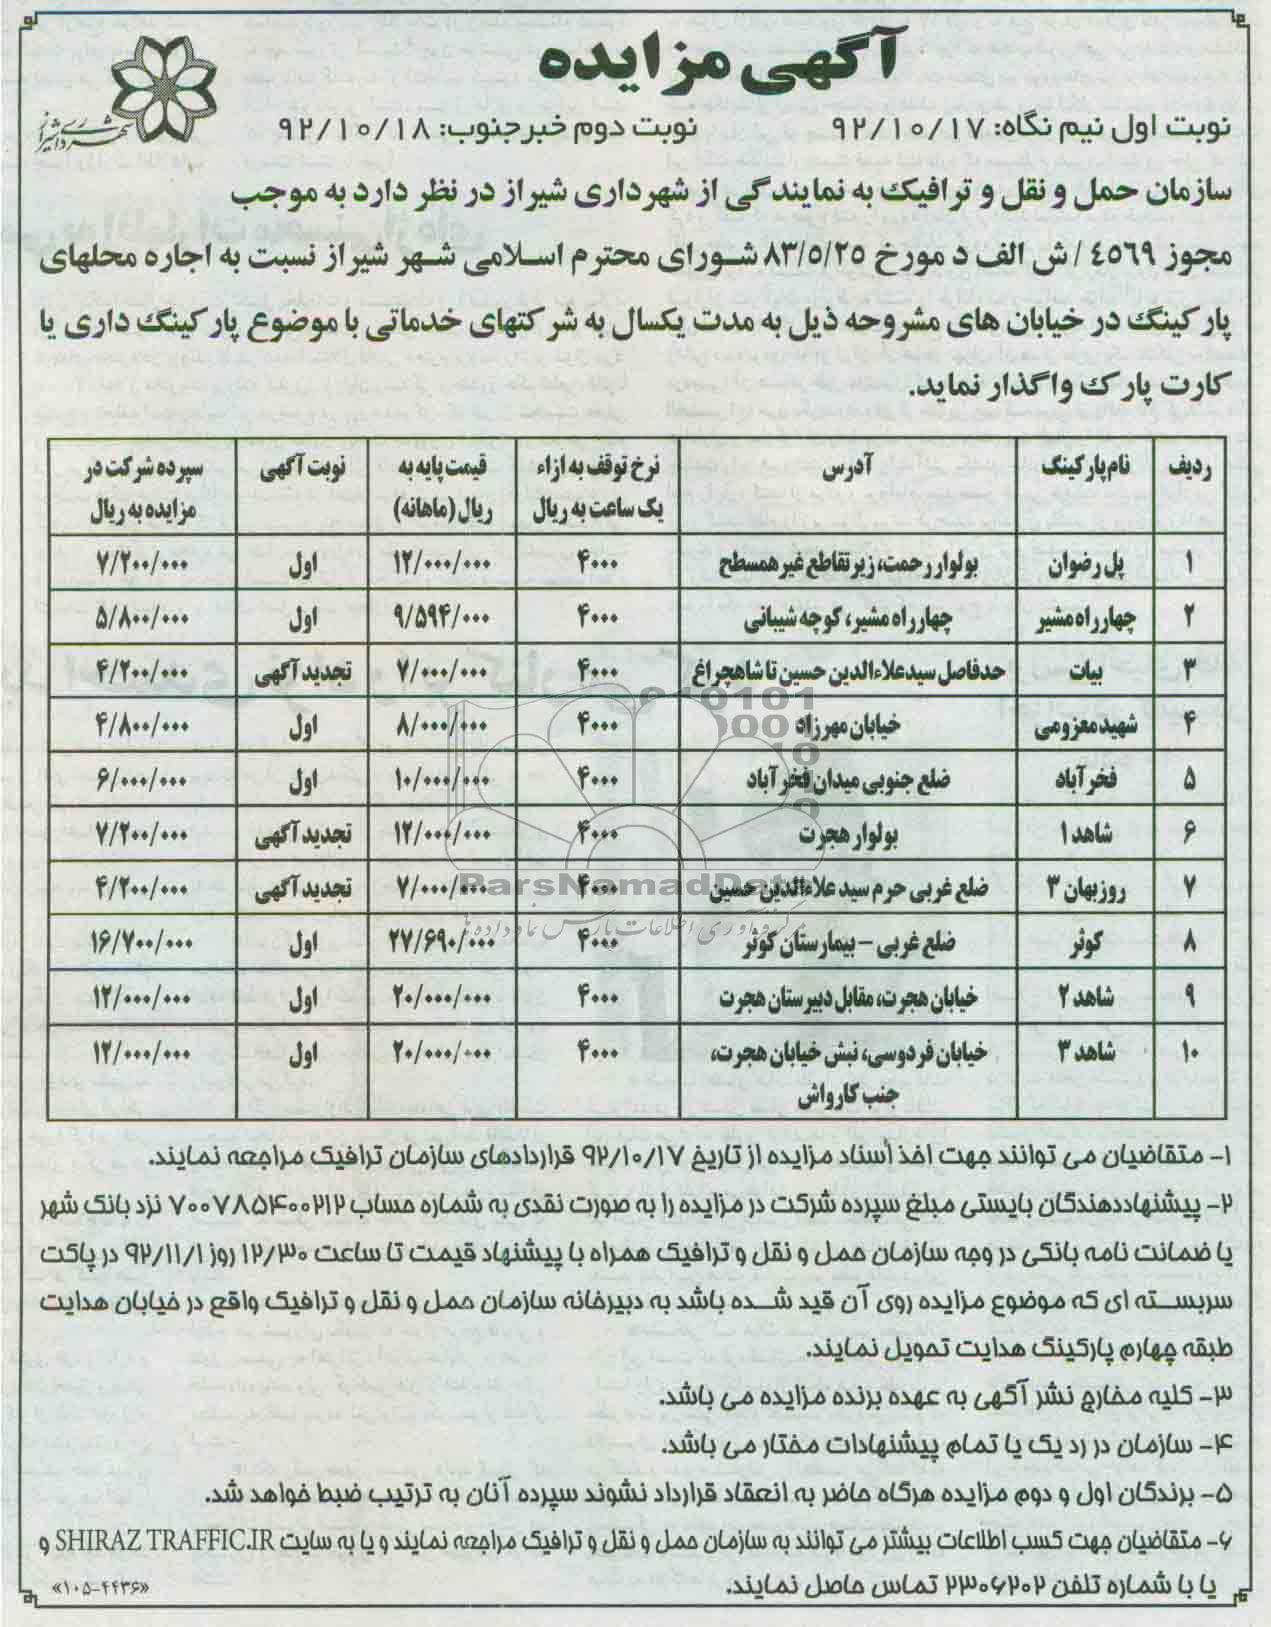 آگهی مزایده
شهرداری شیراز
نوبت اول نیم نگاه: ۹۲/۱۰/۱۷ نوبت دوم خبرجنوب: ۹۲/۱۰/۱۸
سازمان حمل و نقل و ترافیک به نمایندگی از شهرداری شیراز در نظر دارد به موجب
مجوز ٤٥٦٩ / ش الف د مورخ ۸۳/٥/۲٥ شورای محترم اسلامی شهر شیراز نسبت به اجاره محلهای
پارکینگ در خیابان های مشروحه ذیل به مدت یکسال به شرکتهای خدماتی با موضوع پارکینگ داری یا
کارت پارک واگذار نماید.
ردیف نام پارکینگ آدرس نرخ توقف به ازاء یک ساعت به ریال قیمت پایه به ریال (ماهانه) نوبت آگهی سپرده شرکت در مزایده به ریال
۱ پل رضوان بولوار رحمت، زیر تقاطع غیر همسطح ۴۰۰۰ ۱۲/۰۰۰/۰۰۰ اول ۷/۲۰۰/۰۰۰
۲ چهارراه مشیر چهارراه مشیر، کوچه شیبانی ۴۰۰۰ ۹/۵۹۴/۰۰۰ اول ۵/۸۰۰/۰۰۰
۳ بیات حدفاصل سید علاءالدین حسین تا شاهچراغ ۴۰۰۰ ۷/۰۰۰/۰۰۰ تجدید آگهی ۴/۲۰۰/۰۰۰
۴ شهید معزومی خیابان مهرزاد ۴۰۰۰ ۸/۰۰۰/۰۰۰ اول ۴/۸۰۰/۰۰۰
۵ فخرآباد ضلع جنوبی میدان فخرآباد ۴۰۰۰ ۱۰/۰۰۰/۰۰۰ اول ۶/۰۰۰/۰۰۰
۶ شاهد ۱ بولوار هجرت ۴۰۰۰ ۱۲/۰۰۰/۰۰۰ تجدید آگهی ۷/۲۰۰/۰۰۰
۷ روزبهان ۳ ضلع غربی حرم سید علاءالدین حسین ۴۰۰۰ ۷/۰۰۰/۰۰۰ تجدید آگهی ۴/۲۰۰/۰۰۰
۸ کوثر ضلع غربی - بیمارستان کوثر ۴۰۰۰ ۲۷/۶۹۰/۰۰۰ اول ۱۶/۷۰۰/۰۰۰
۹ شاهد ۲ خیابان هجرت، مقابل دبیرستان هجرت ۴۰۰۰ ۲۰/۰۰۰/۰۰۰ اول ۱۲/۰۰۰/۰۰۰
۱۰ شاهد ۳ خیابان فردوسی، نبش خیابان هجرت، جنب کارواش ۴۰۰۰ ۲۰/۰۰۰/۰۰۰ اول ۱۲/۰۰۰/۰۰۰
ParsNamadData
مرکز فرآوری اطلاعات پارس نماد داده ها
۱- متقاضیان می توانند جهت اخذ اسناد مزایده از تاریخ ۹۲/۱۰/۱۷ قراردادهای سازمان ترافیک مراجعه نمایند.
۲- پیشنهاددهندگان بایستی مبلغ سپرده شرکت در مزایده را به صورت نقدی به شماره حساب ۷۰۰۷۸۵۴۰۰۲۱۲ نزد بانک شهر
یا ضمانت نامه بانکی در وجه سازمان حمل و نقل و ترافیک همراه با پیشنهاد قیمت تا ساعت ۱۲/۳۰ روز ۹۲/۱۱/۱ در پاکت
سربسته ای که موضوع مزایده روی آن قید شده باشد به دبیرخانه سازمان حمل و نقل و ترافیک واقع در خیابان هدایت
طبقه چهارم پارکینگ هدایت تحویل نمایند.
۳- کلیه مخارج نشر آگهی به عهده برنده مزایده می باشد.
۴- سازمان در رد یک یا تمام پیشنهادات مختار می باشد.
۵- برندگان اول و دوم مزایده هرگاه حاضر به انعقاد قرارداد نشوند سپرده آنان به ترتیب ضبط خواهد شد.
۶- متقاضیان جهت کسب اطلاعات بیشتر می توانند به سازمان حمل و نقل و ترافیک مراجعه نمایند و یا به سایت SHIRAZ TRAFFIC.IR و
یا با شماره تلفن ۲۳۰۶۲۰۲ تماس حاصل نمایند.
«۱۰۵-۴۴۳۶»